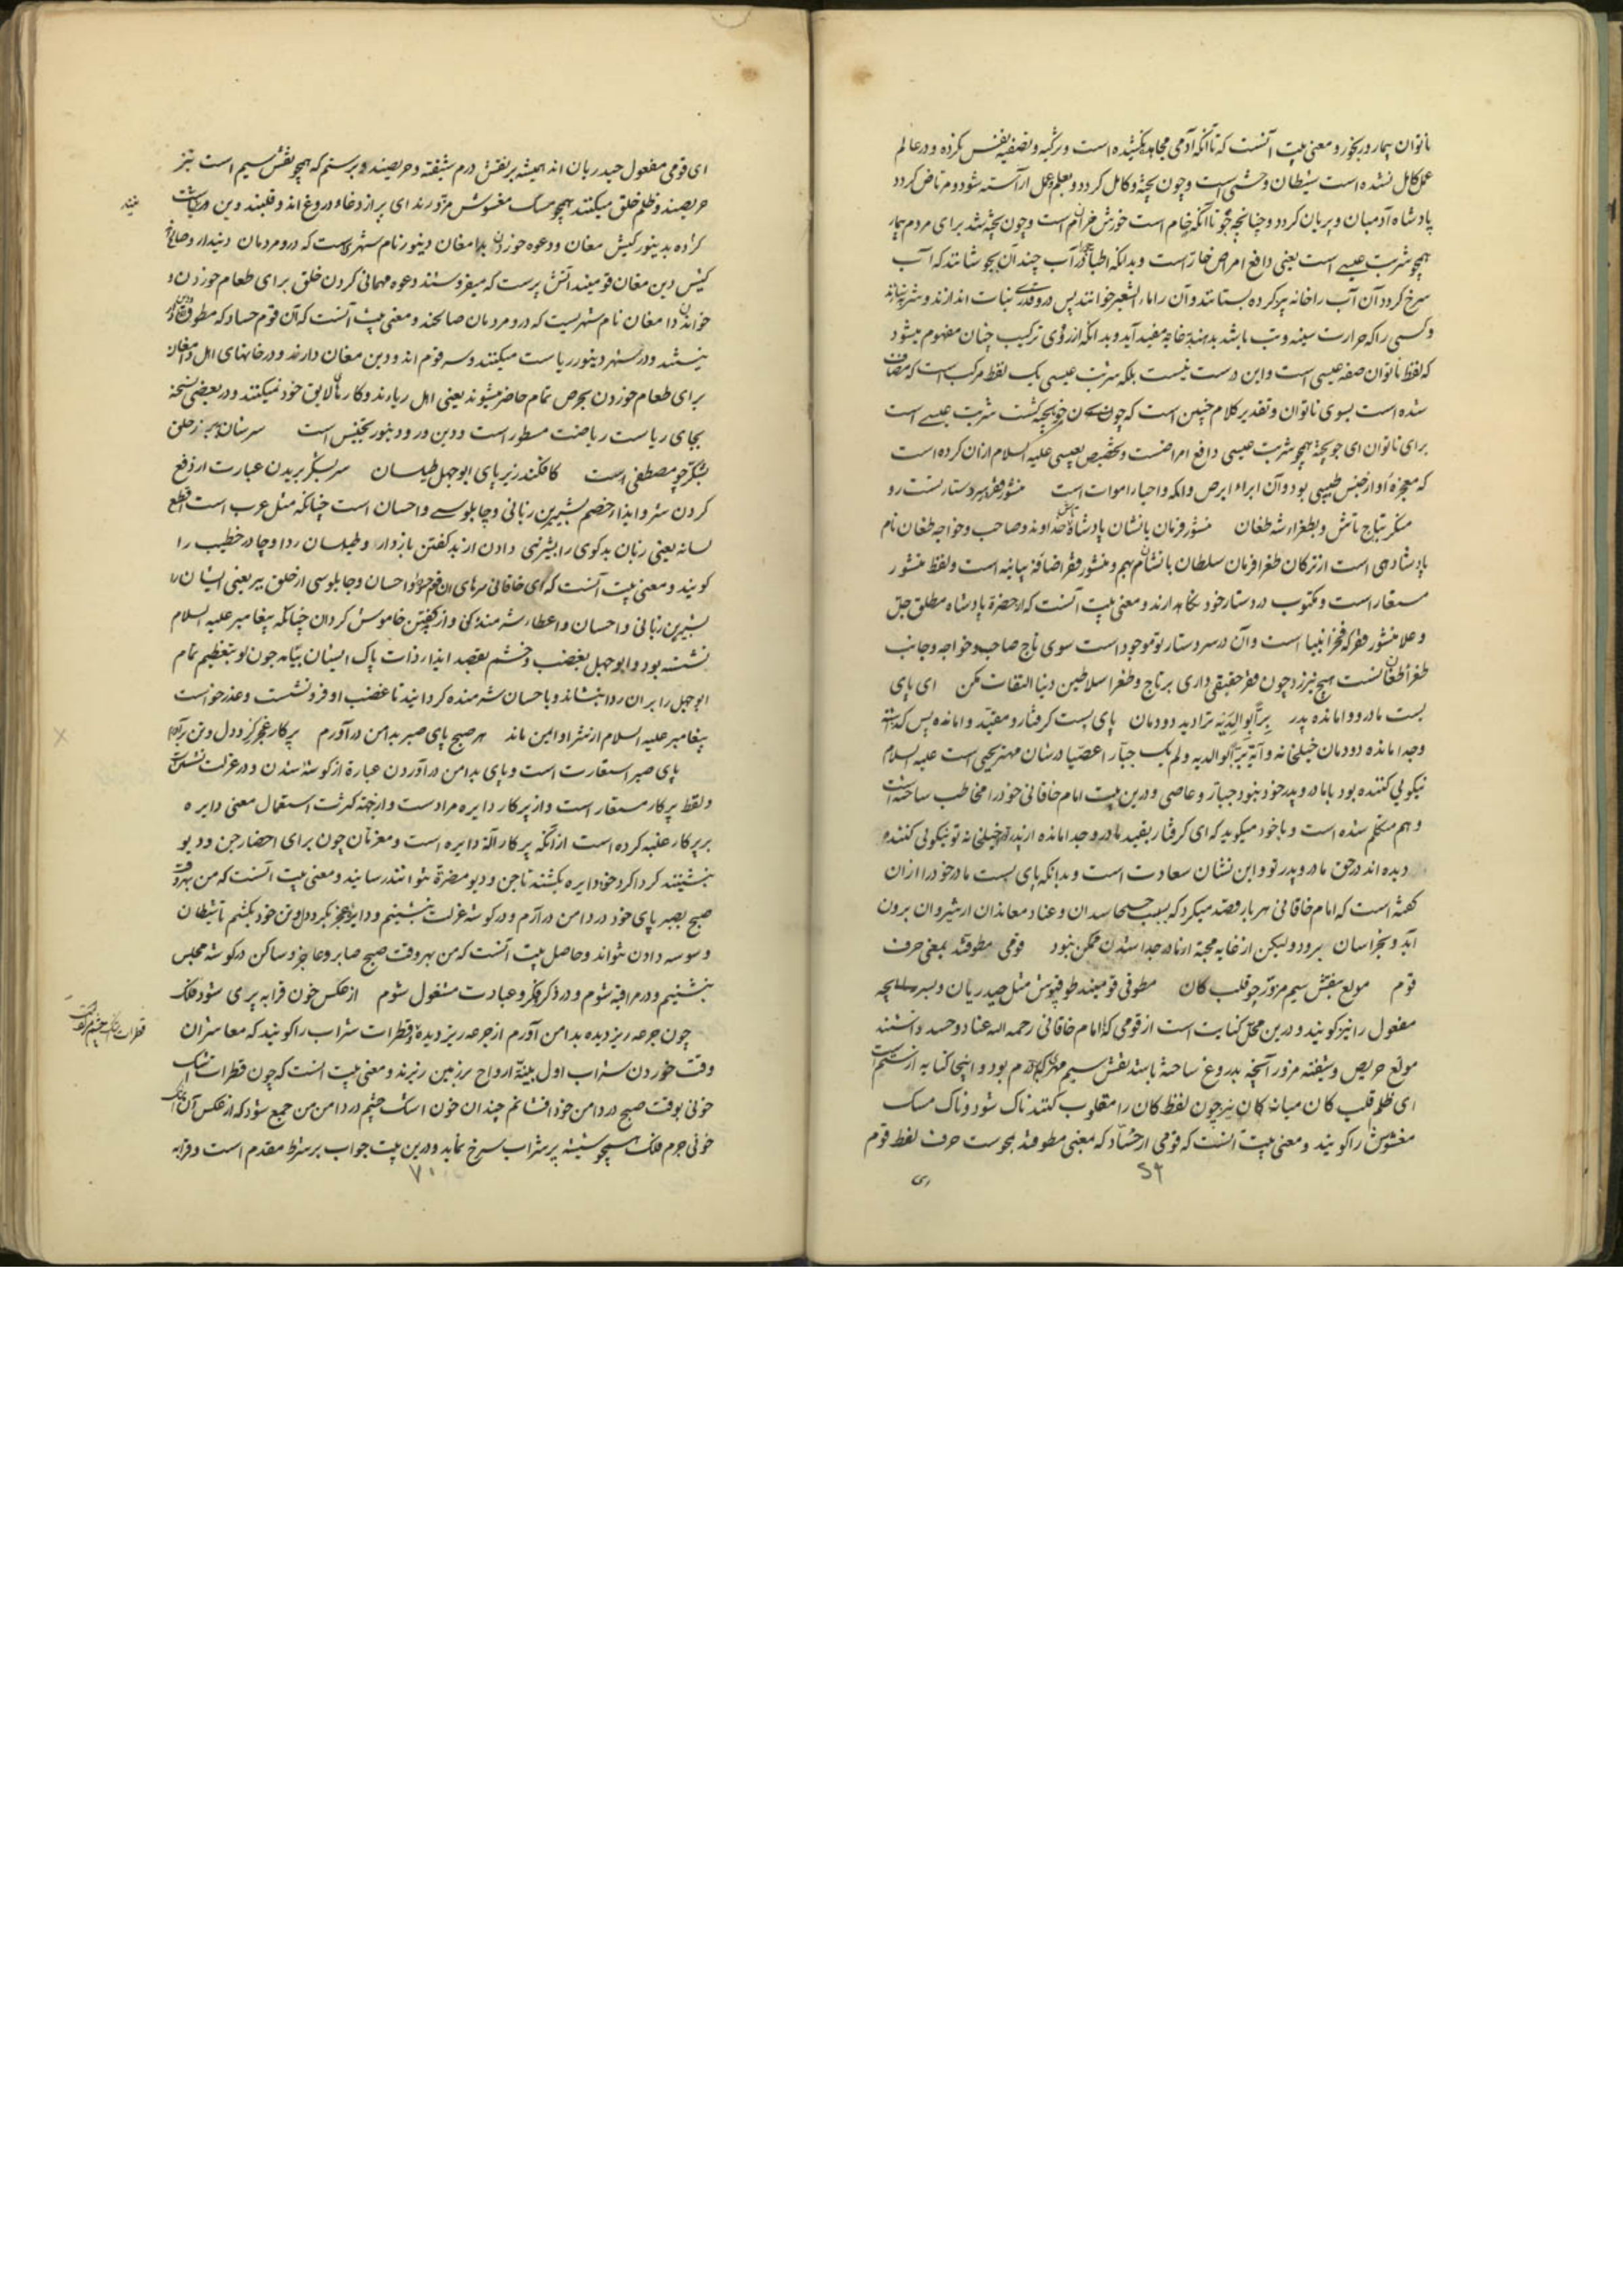 ناتوان بیمار و رنجور و معنی بیت آنست که تا آنکه آدمی مجاهده نکشیده است و تزکیه و تصفیه نفس نکرده و در عالم
عمل کامل نشده است شیطان وحشی است و چون پخته و کامل کردد و بعلم و عمل آراسته شود و مرتاض کردد
پادشاه آدمیان و پریان کردد و چنانچه جو تا آنکه خام است خورش خران است و چون پخته شد برای مردم بیمار
همچو شربت عیسی است یعنی دافع امراض حار است و بدانکه اطبا جو را در آب چندان بجوشانند که آب
سرخ کردد آن آب را خانه پز کرده بستانند و آن را ماء الشعیر خوانند پس درو قدری نبات اندازند و شربه سازند
و کسی را که حرارت سینه و تب باشد بدهند بغایه مفید آید و بدانکه از روی ترکیب چنان مفهوم میشود
که لفظ ناتوان صفه عیسی است و این درست نیست بلکه شربت عیسی یک لفظ مرکب است که مضاف
شده است بسوی ناتوان و تقدیر کلام چنین است که چون جو پخته کشت شربت عیسی است
برای ناتوان ای جو پخته همچو شربت عیسی دافع امراضست و تخصیص بعیسی علیه السلام ازان کرده است
که معجزه او از جنس طبیبی بود و آن ابراء ابرص و اکمه و احیاء اموات است منشور فقر بر سر دستار تست رو
منکر بتاج تاش و بطغراء شه طغان منشور فرمان با نشان پادشاه تاش خداوند و صاحب و خواجه طغان نام
پادشاهی است از ترکان طغرا فرمان سلطان با نشان بهم و منشور فقر اضافة بیانیه است و لفظ منشور
مستعار است و مکتوب در دستار خود نکاه دارند و معنی بیت آنست که از حضرة پادشاه مطلق جل
و علا منشور فقر که فخر انبیا است و آن در سر دستار تو موجود است سوی تاج صاحب و خواجه و جانب
طغرا طغان نسبت هیچ نیرزد چون فقر حقیقی داری بر تاج و طغرا سلاطین دنیا التفات مکن ای پای
بست مادر و وامانده پدر برا بوالدیه ترا دید دودمان پای بست کرفتار و مقید وامانده پس گذاشته
و جدا مانده دودمان خیلخانه و آیه برا بوالدیه و لم یک جبارا عصیا در شان مهتر یحیی است علیه السلام
نیکویی کننده بود با مادر و پدر خود نبود جبار و عاصی و درین بیت امام خاقانی خود را مخاطب ساخته است
و هم متکلم شده است و با خود میکوید که ای کرفتار بقید مادر و جدا مانده از پدر خیلخانه تو نیکویی کننده
دیده اند در حق مادر و پدر تو و این نشان سعادت است و بدانکه پای بست مادر خود را ازان
کفته است که امام خاقانی هر بار قصد میکرد که بسبب حاسدان و عناد معاندان از شیروان برون
آید و بخراسان برود و لیکن از غایه محبة از مادر جدا شدن ممکن نبود قومی مطوقند بمعنی حرف
قوم مولع بنقش سیم مزور چو قلب کان مطوقی قومیند طوقپوش مثل حیدریان و پسر
مفعول را نیز کویند و درین محل کنایت است از قومی که با امام خاقانی رحمه الله عناد و حسد داشتند
مولع حریص و شیفته مزور آنچه بدروغ ساخته باشند نقش سیم مهر که بر درم بود و اینجا کنایه از ستم است
ای ظلم قلب کان میانه کان نیز چون لفظ کان را مقلوب کنند ناک شود و ناک مسک
مغشوش را کویند و معنی بیت آنست که قومی از حساد که معنی مطوقند بحوست حرف لفظ قوم
ای قومی مفعول حیدریان اند همیشه بر نقش درم شیفته و حریصند و بر ستم که همچو نقش سیم است نیز
حریصند و ظلم خلق میکنند همچو مسک مغشوش مزورند ای پر از دغا و دروغ اند و قلبند و بن
کرده بدینور کیش مغان و دعوه خوردن بدامغان دینور نام شهری است که درو مردمان دیندار و صالح
کیش دین مغان قومیند آتش پرست که میفروشند دعوه مهمانی کردن خلق برای طعام خوردن و
خواندن دامغان نام شهریست که درو مردمان صالحند و معنی بیت آنست که آن قوم حساد که مطوقند
نیستند و در شهر دینور ریاست میکنند و سر قوم اند و دین مغان دارند و در خانهای اهل دامغان
برای طعام خوردن بحرص تمام حاضر میشوند یعنی اهل ریاء اند و کار لایق خود نمیکنند و در بعضی نسخه
بجای ریاست ریاضت مسطور است و دین در و دینور تجنیس است سر شان ببر ز حلق
بشکر چو مصطفی است کافکند زیر پای ابوجهل طیلسان سر بشکر بریدن عبارت از دفع
کردن شر و ایذاء خصم بشیرین زبانی و چاپلوسی و احسان است چنانکه مثل عرب است اقطع
لسانه یعنی زبان بدکوی را بشیرنی دادن از بد کفتن بازدار و طیلسان ردا و چادر خطیب را
کویند و معنی بیت آنست که ای خاقانی سرهای این قوم حسود را باحسان و چاپلوسی از خلق ببر یعنی ایشان را
بشیرین زبانی و احسان و اعطاء شرمنده کن و از بد کفتن خاموش کردان چنانکه پیغامبر علیه السلام
نشسته بود و ابوجهل بغضب و خشم بقصد ایذاء ذات پاک ایشان بیامد چون او بتعظیم تمام
ابوجهل را بر آن ردا بنشاند و باحسان شرمنده کردانید تا غضب او فرو نشست و عذر خواست
پیغامبر علیه السلام از شر او ایمن ماند هر صبح پای صبر بدامن در آورم پرکار عجز کرد دل و تن برآورم
پای صبر استعارت است و پای بدامن در آوردن عبارة از کوشه شدن و در عزلت نشستن است
و لفظ پرکار مستعار است و از پرکار دایره مراد است و از جهة کثرت استعمال معنی دایره
بر پرکار غلبه کرده است از آنکه پرکار آلة دایره است و معزمان چون برای احضار جن و دیو
بنشینند کرداکرد خود دایره بکشند تا جن و دیو مضرة نتوانند رسانید و معنی بیت آنست که من بهر وقت
صبح بصبر پای خود در دامن در آرم و در کوشه عزلت بنشینم و دایره عجز بکرد دل و تن خود بکشم تا شیطان
وسوسه دادن نتواند و حاصل بیت آنست که من بهر وقت صبح صابر و عاجز و ساکن در کوشه مجلس
بنشینم و در مراقبة شوم و در ذکر و فکر و عبادت مشغول شوم از عکس خون قرابه پر می شود فلک
چون جرعه ریز دیده بدامن آورم از جرعه ریز دیده قطرات شراب را کویند که معاشران
وقت خوردن شراب اول بنیة ارواح بر زمین ریزند و معنی بیت آنست که چون قطرات اشک
خونی بوقت صبح در دامن خود افشانم چندان خون اشک چشم در دامن من جمع شود که از عکس آن اشک
خونی جرم فلک همچو شیشه پر شراب سرخ نماید و درین بیت جواب بر شرط مقدم است و قرابه